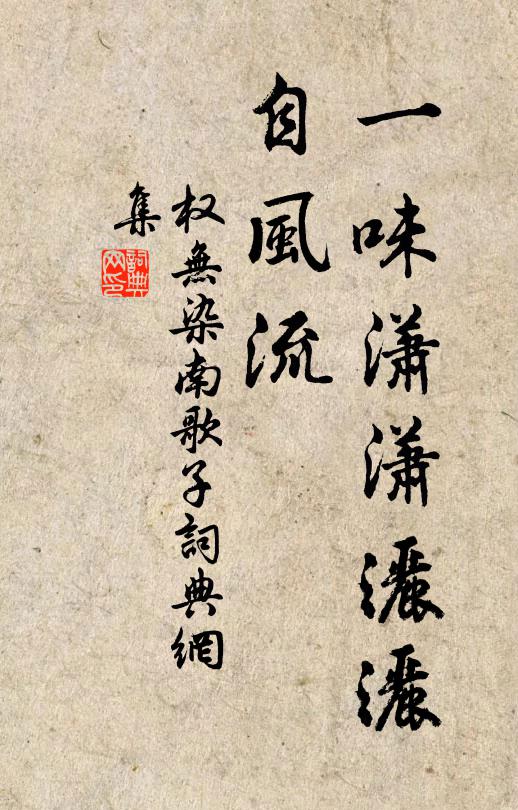 一味瀟瀟灑灑
自風流
权無染南歌子詞典網
集
詞典
网印